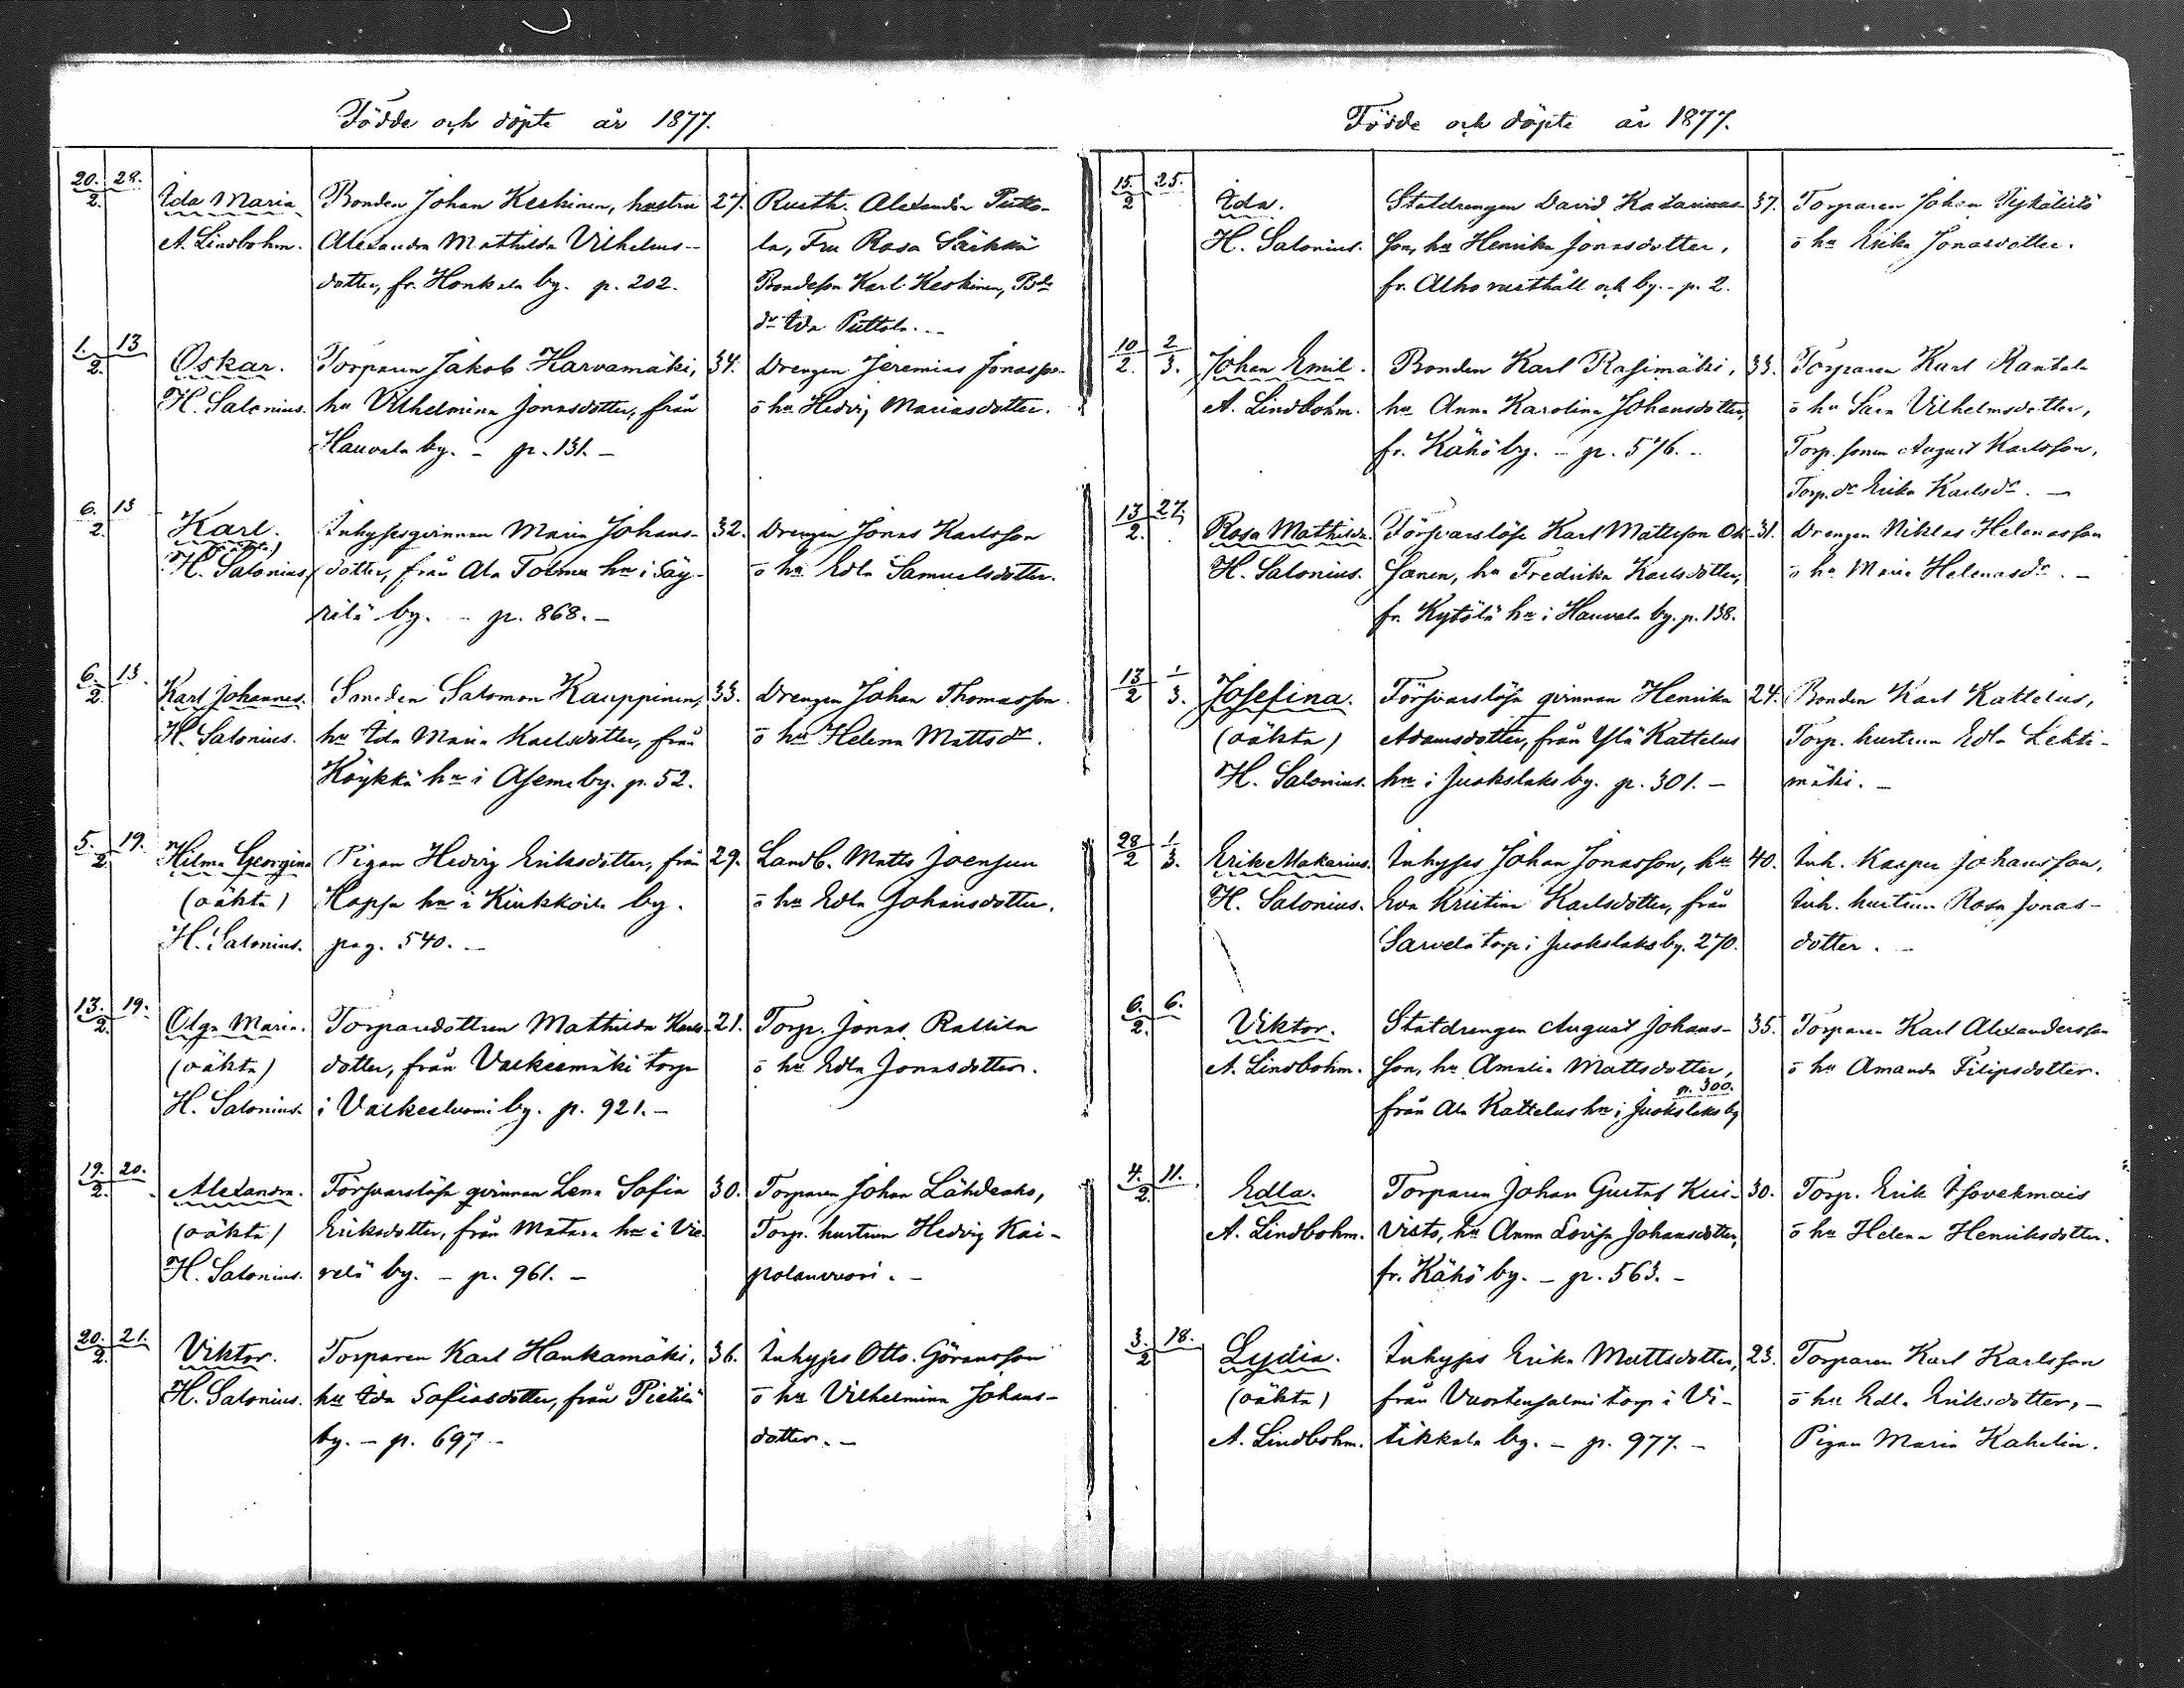 Födde och döpte år 1877.
20. 28.
2.
Ida Maria Bonden Johan Keskinen, hustru 27. Rusth. Alexander Putto-
A. Lindbohm. Alexandra Mathilda Vilhelms- la, Fru Rosa Särkkä
dotter, fr. Honkala by. p. 202. Bondeson Karl Keskinen, Bde
dr Ida Puttola. -
1. 13
2.
Oskar. Torparen Jakob Harvamäki, 34. Drengen Jeremias Jonasson
H. Salonius. hu Vilhelmina Jonasdotter, från o hu Hedvig Mariasdotter.
Hauvala by. - p. 131. -
6. 13
2.
Karl. Inhysesqvinnan Maria Johans- 32. Drengen Jonas Karlsson
(oäkta)
H. Salonius dotter, från Ala Tolmu hn i Säy- o hu Edla Samuelsdotter.
rilä by. - p. 868. -
6. 13.
2.
Karl Johannes. Smeden Salomon Kauppinen, 33. Drengen Johan Thomasson
H. Salonius. hu Ida Maria Karlsdotter, från o hu Helena Matts dr.
Köykkä hn i Asemaby. p. 52.
5. 19.
2
Hilma Georgina Pigan Hedvig Eriksdotter, från 29. Landb. Matts Joensuu
(oäkta) Hopsu hn i Kiukkoila by. o hu Edla Johansdotter.
H. Salonius. pag. 540. -
13. 19.
2.
Olga Maria. Torparedottren Mathilda Karls- 21. Torp. Jonas Rallila
(oäkta) dotter, från Valkeemäki torp o hu Edla Jonasdotter.
H. Salonius. i Valkeeluomi by. p. 921. -
19. 20.
2.
Alexandra. Försvarslösa qvinnan Lena Sofia 30. Torparen Johan Lähdeaho,
(oäkta) Eriksdotter, från Matara hn i Vie- Torp. hustrun Hedvig Kai-
H. Salonius. relä by. - p. 961. - polanvuori. -
20. 21.
2.
Viktor. Torparen Karl Haukamäki, 36. Inhyses Otto Göransson
H. Salonius. hu Ida Sofiasdotter, från Pietilä o hu Vilhelmina Johans-
by. - p. 697 - dotter. -
Födde och döpte år 1877.
15. 25.
2
Ida. Statdrengen David Katarinas- 37. Torparen Johan Pykälistö
H. Salonius. son, hu Henrika Jonasdotter, o hu Erika Jonasdotter.
fr. Alho rusthåll och by. - p. 2.
10 2
2. 3.
Johan Emil. Bonden Karl Rasimäki, 33. Torparen Karl Rantala
A. Lindbohm. hu Anna Karolina Johansdotter, o hu Sara Vilhelmsdotter,
fr. Kähö by. - p. 576. - Torp. sonen August Karlsson,
Torp. dr Erika Karlsdr. -
13 27.
2.
Rosa Mathilda. Försvarslöse Karl Mattsson Ok- 31. Drengen Niklas Helenasson
H. Salonius. sanen, hu Fredrika Karlsdotter, o hu Maria Helenasdr. -
fr. Kytölä hn i Hauvala by. p. 138.
13 1
2 3.
Josefina. Försvarslösa qvinnan Henrika 24. Bonden Karl Kattelus,
(oäkta) Adamsdotter, från Ylä Kattelus Torp. hustrun Edla Lehti-
H. Salonius. hn i Juokslaks by. p. 301. - mäki. -
28 1
2 3.
Erik Makarius. Inhyses Johan Jonasson, hu 40. Inh. Kasper Johansson,
H. Salonius. Eva Kristina Karlsdotter, från Inh. hustrun Rosa Jonas-
Sarvela torp i Juokslaks by. 270. dotter. -
6. 6.
2.
Viktor. Statdrengen August Johans- 35. Torparen Karl Alexandersson
A. Lindbohm. son, hu Amalia Mattsdotter, o hu Amanda Filipsdotter.
p. 300.
från Ala Kattelus hn i Juokslaks by
4. 11.
2.
Edla. Torparen Johan Gustaf Kui- 30. Torp. Erik Isovekmais
A. Lindbohm. visto, hu Anna Lovisa Johansdotter, o hu Helena Henriksdotter.
fr. Kähö by. - p. 563. -
3. 18.
2
Lydia. Inhyses Erika Mattsdotter, 23. Torparen Karl Karlsson
(oäkta) från Vuortensalmi torp i Vi- o hu Edla Eriksdotter, -
A. Lindbohm. tikkala by. - p. 977. - Pigan Maria Kahelin.